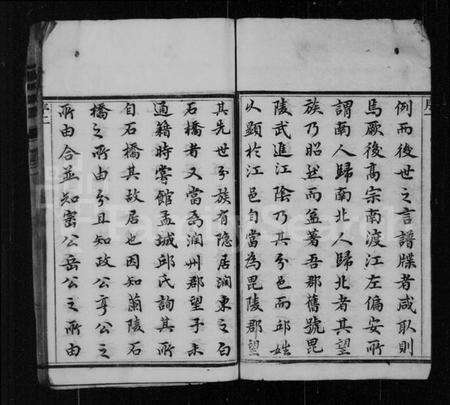 例而後世之言譜牒者咸取則
焉厥後高宗南渡江左偏安所
謂南人歸南北人歸北者其望
族乃昭然而益著吾郡舊號毘
陵武進江陰乃其分邑而邱姓
以顯於江邑自當為毘陵郡望
其先世分族有隱居澗東之白
石橋者又當為潤州郡望予未
通籍時嘗館孟城邱氏詢其所
自石橋其故居也因知蘭陵石
橋之所由分且知政公亨公之
所由合並知密公岳公之所由